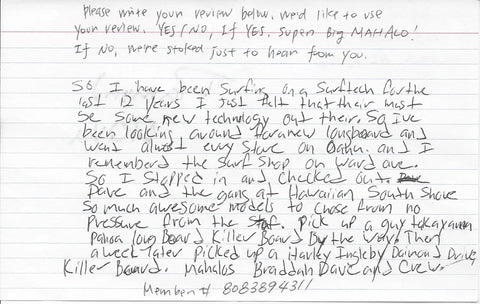 please write your review below. we'd like to use
your review. YES/NO, If YES, super Big MAHALO!
If No, we're stoked just to hear from you.
So I have been Surfing on a Surftech for the
last 12 years I Just felt that their must
be Some new technology out their. So I've
been looking around for a new longboard and
went almost evry Store on Oahu. and I
rememberd the Surf Shop on Ward ave.
So I Stopped in and checked out
Dave and the gang at Hawaiian South Shore
So much awesome models to chose from no
Pressure from the Staf. Pick up a guy takayama
panoa long Board Killer Board By the way. Then
a week later Picked up a Harley Ingleby Daimond Drive
Killer Board. Mahalos Braddah Dave and Crew.
Member # 8083894311